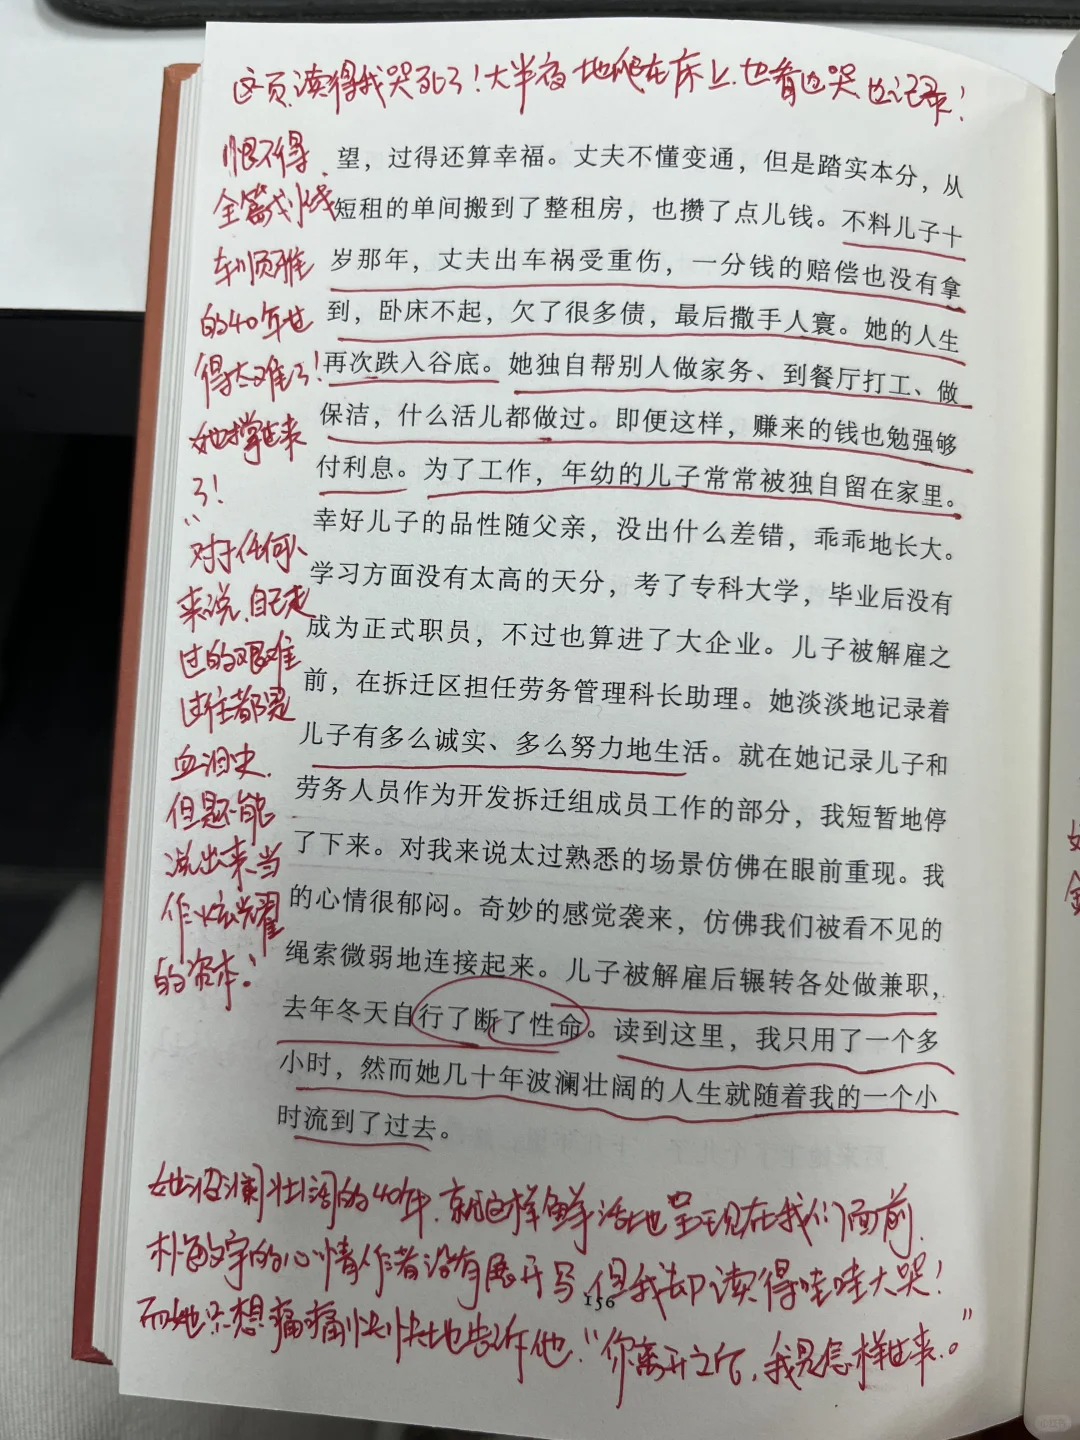 这页读得我哭死了！大半夜地爬在床上也看也哭也记录！
恨不得
全篇划线
车顺雅
的40年也
得太难了！
她撑过来
了！
对于任何人
来说，自己走
过的艰难
过往都是
血泪史，
但愿能
说出来当
作炫耀
的资本！
望，过得还算幸福。丈夫不懂变通，但是踏实本分，从
短租的单间搬到了整租房，也攒了点儿钱。不料儿子十
岁那年，丈夫出车祸受重伤，一分钱的赔偿也没有拿
到，卧床不起，欠了很多债，最后撒手人寰。她的人生
再次跌入谷底。她独自帮别人做家务、到餐厅打工、做
保洁，什么活儿都做过。即便这样，赚来的钱也勉强够
付利息。为了工作，年幼的儿子常常被独自留在家里。
幸好儿子的品性随父亲，没出什么差错，乖乖地长大。
学习方面没有太高的天分，考了专科大学，毕业后没有
成为正式职员，不过也算进了大企业。儿子被解雇之
前，在拆迁区担任劳务管理科长助理。她淡淡地记录着
儿子有多么诚实、多么努力地生活。就在她记录儿子和
劳务人员作为开发拆迁组成员工作的部分，我短暂地停
了下来。对我来说太过熟悉的场景仿佛在眼前重现。我
的心情很郁闷。奇妙的感觉袭来，仿佛我们被看不见的
绳索微弱地连接起来。儿子被解雇后辗转各处做兼职，
去年冬天自行了断了性命。读到这里，我只用了一个多
小时，然而她几十年波澜壮阔的人生就随着我的一个小
时流到了过去。
她波澜壮阔的40年，就这样鲜活地呈现在我们面前，
朴色文字的心情作者没有展开写，但我却读得哇哇大哭！
156
而她只想痛痛快快地告诉他：“你离开之后，我是怎样过来。”